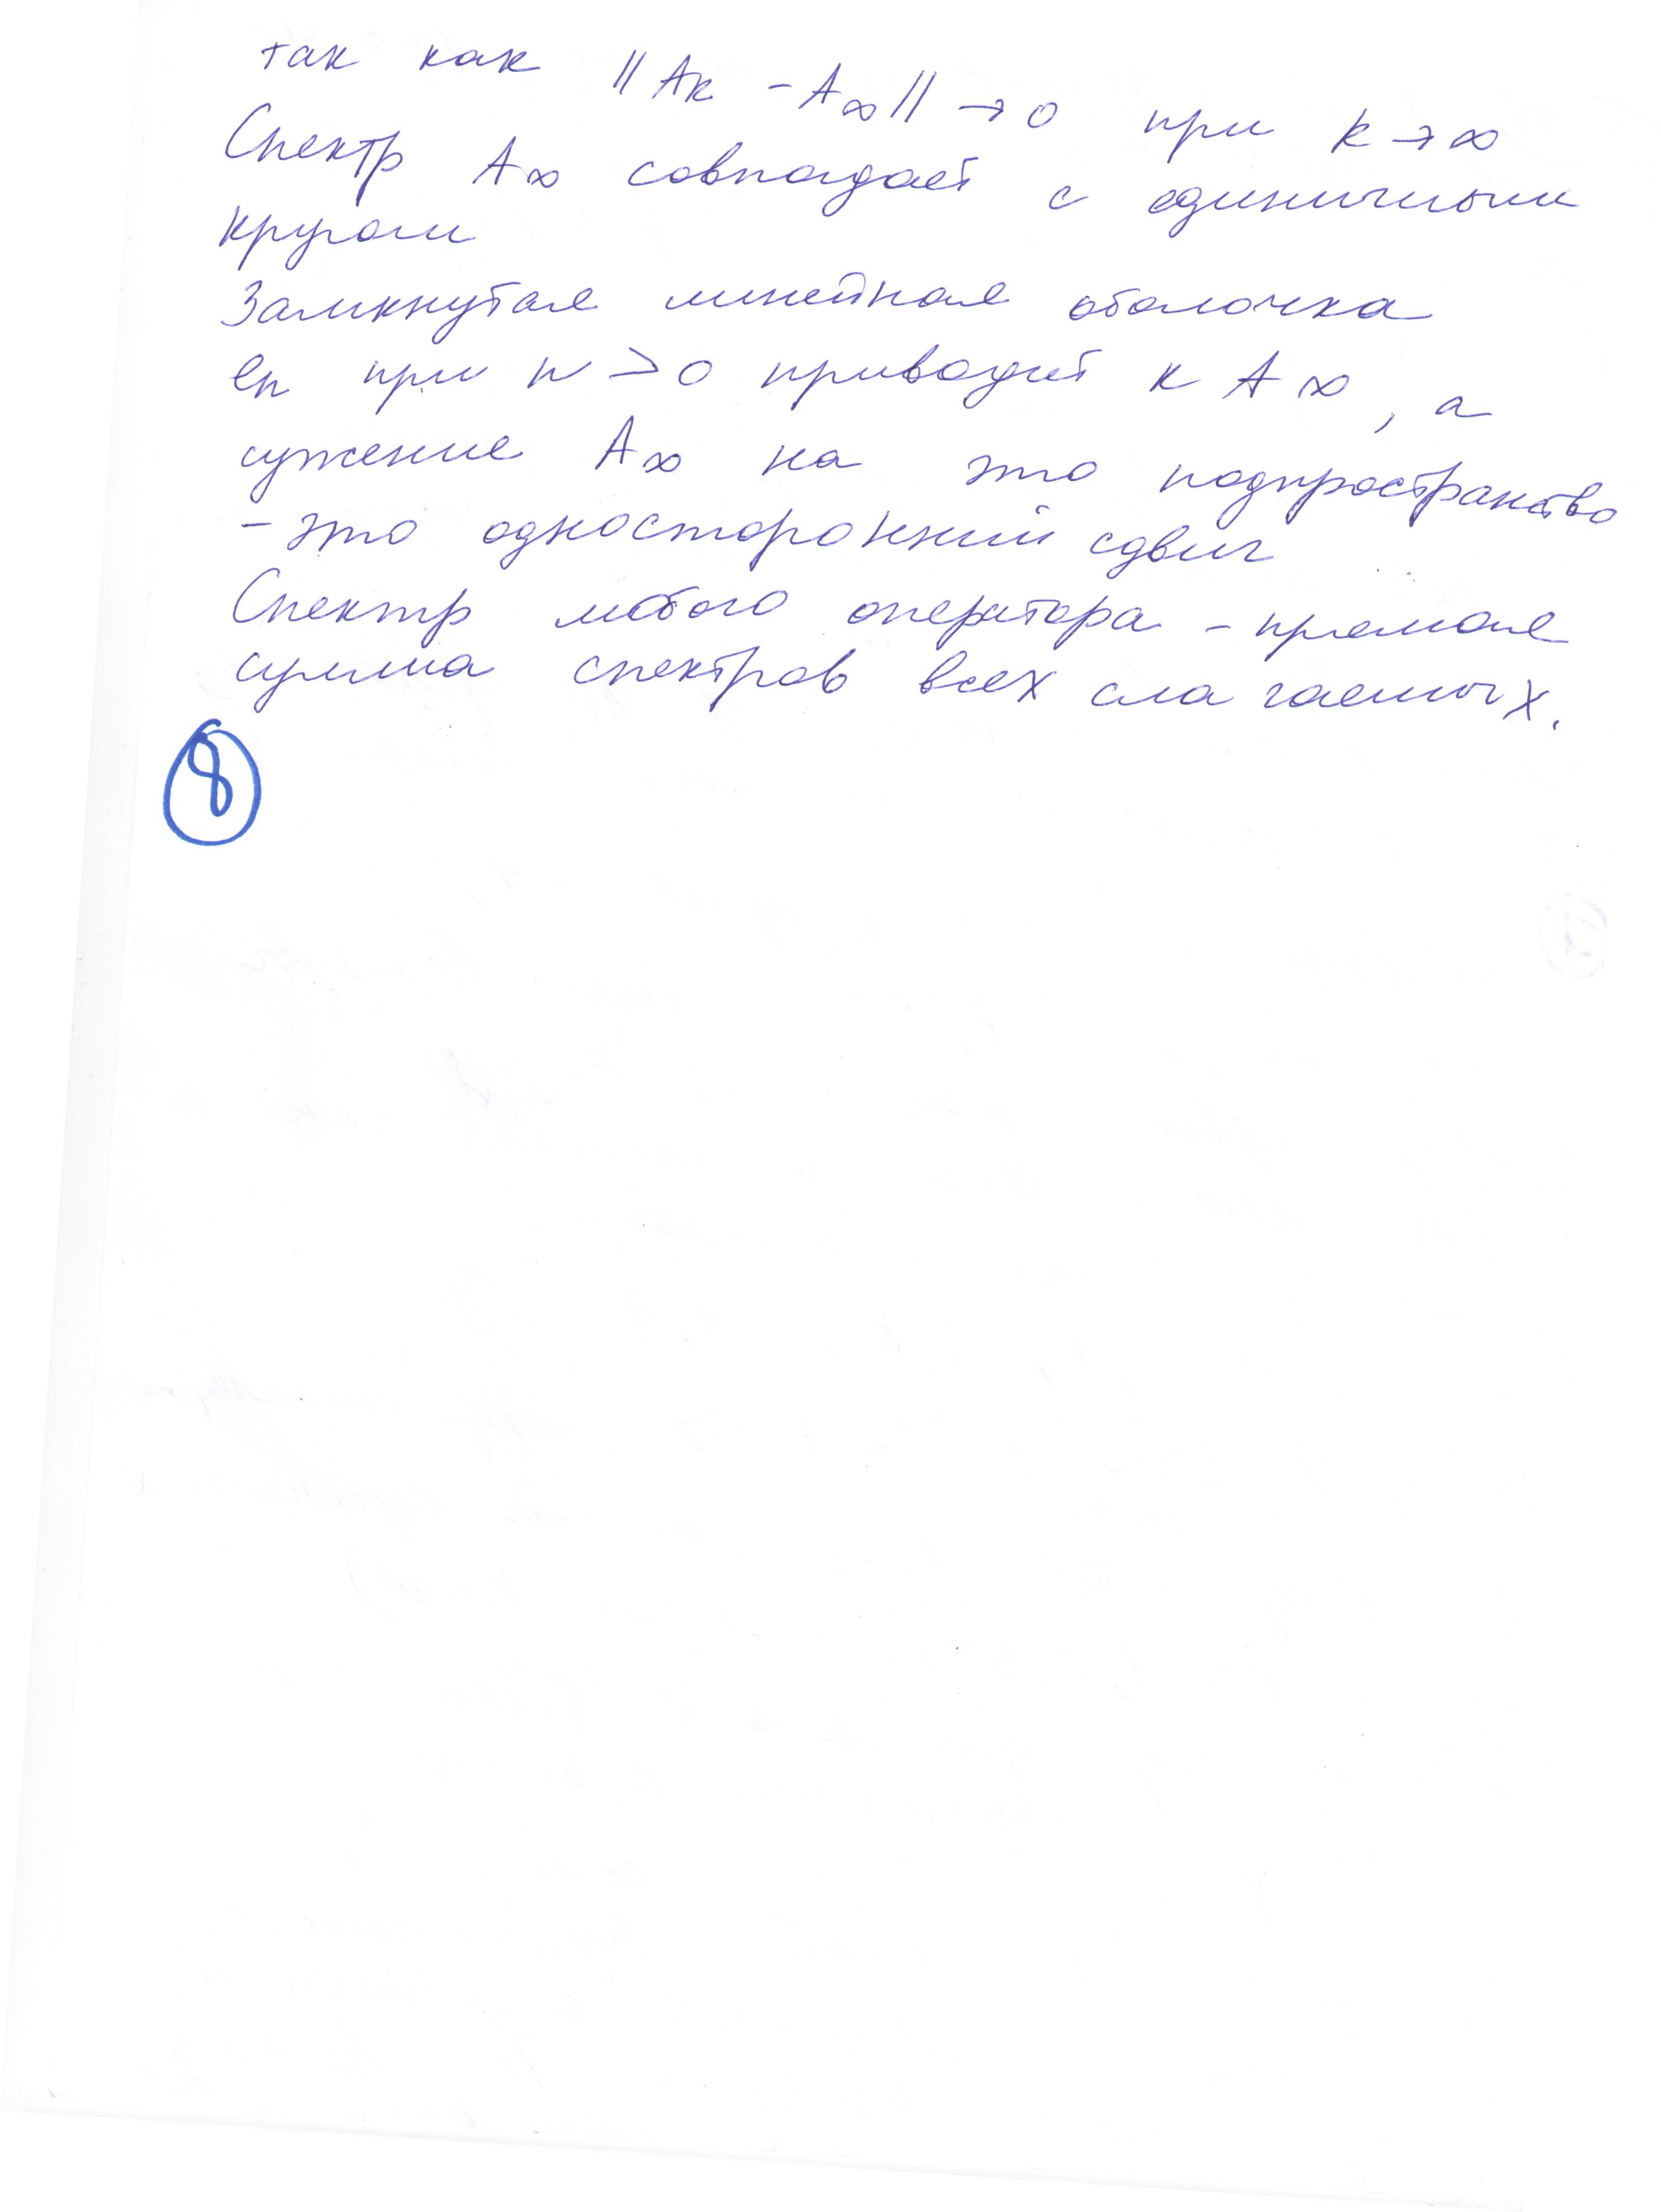 так как ‖Aк - A∞‖ → 0 при k → ∞
Спектр A∞ совпадает с единичным
кругом
Замкнутая линейная оболочка
en при n > 0 приводит к A∞, а
сужение A∞ на это подпространство
- это односторонний сдвиг
Спектр любого оператора - прямая
сумма спектров всех слагаемых.
8